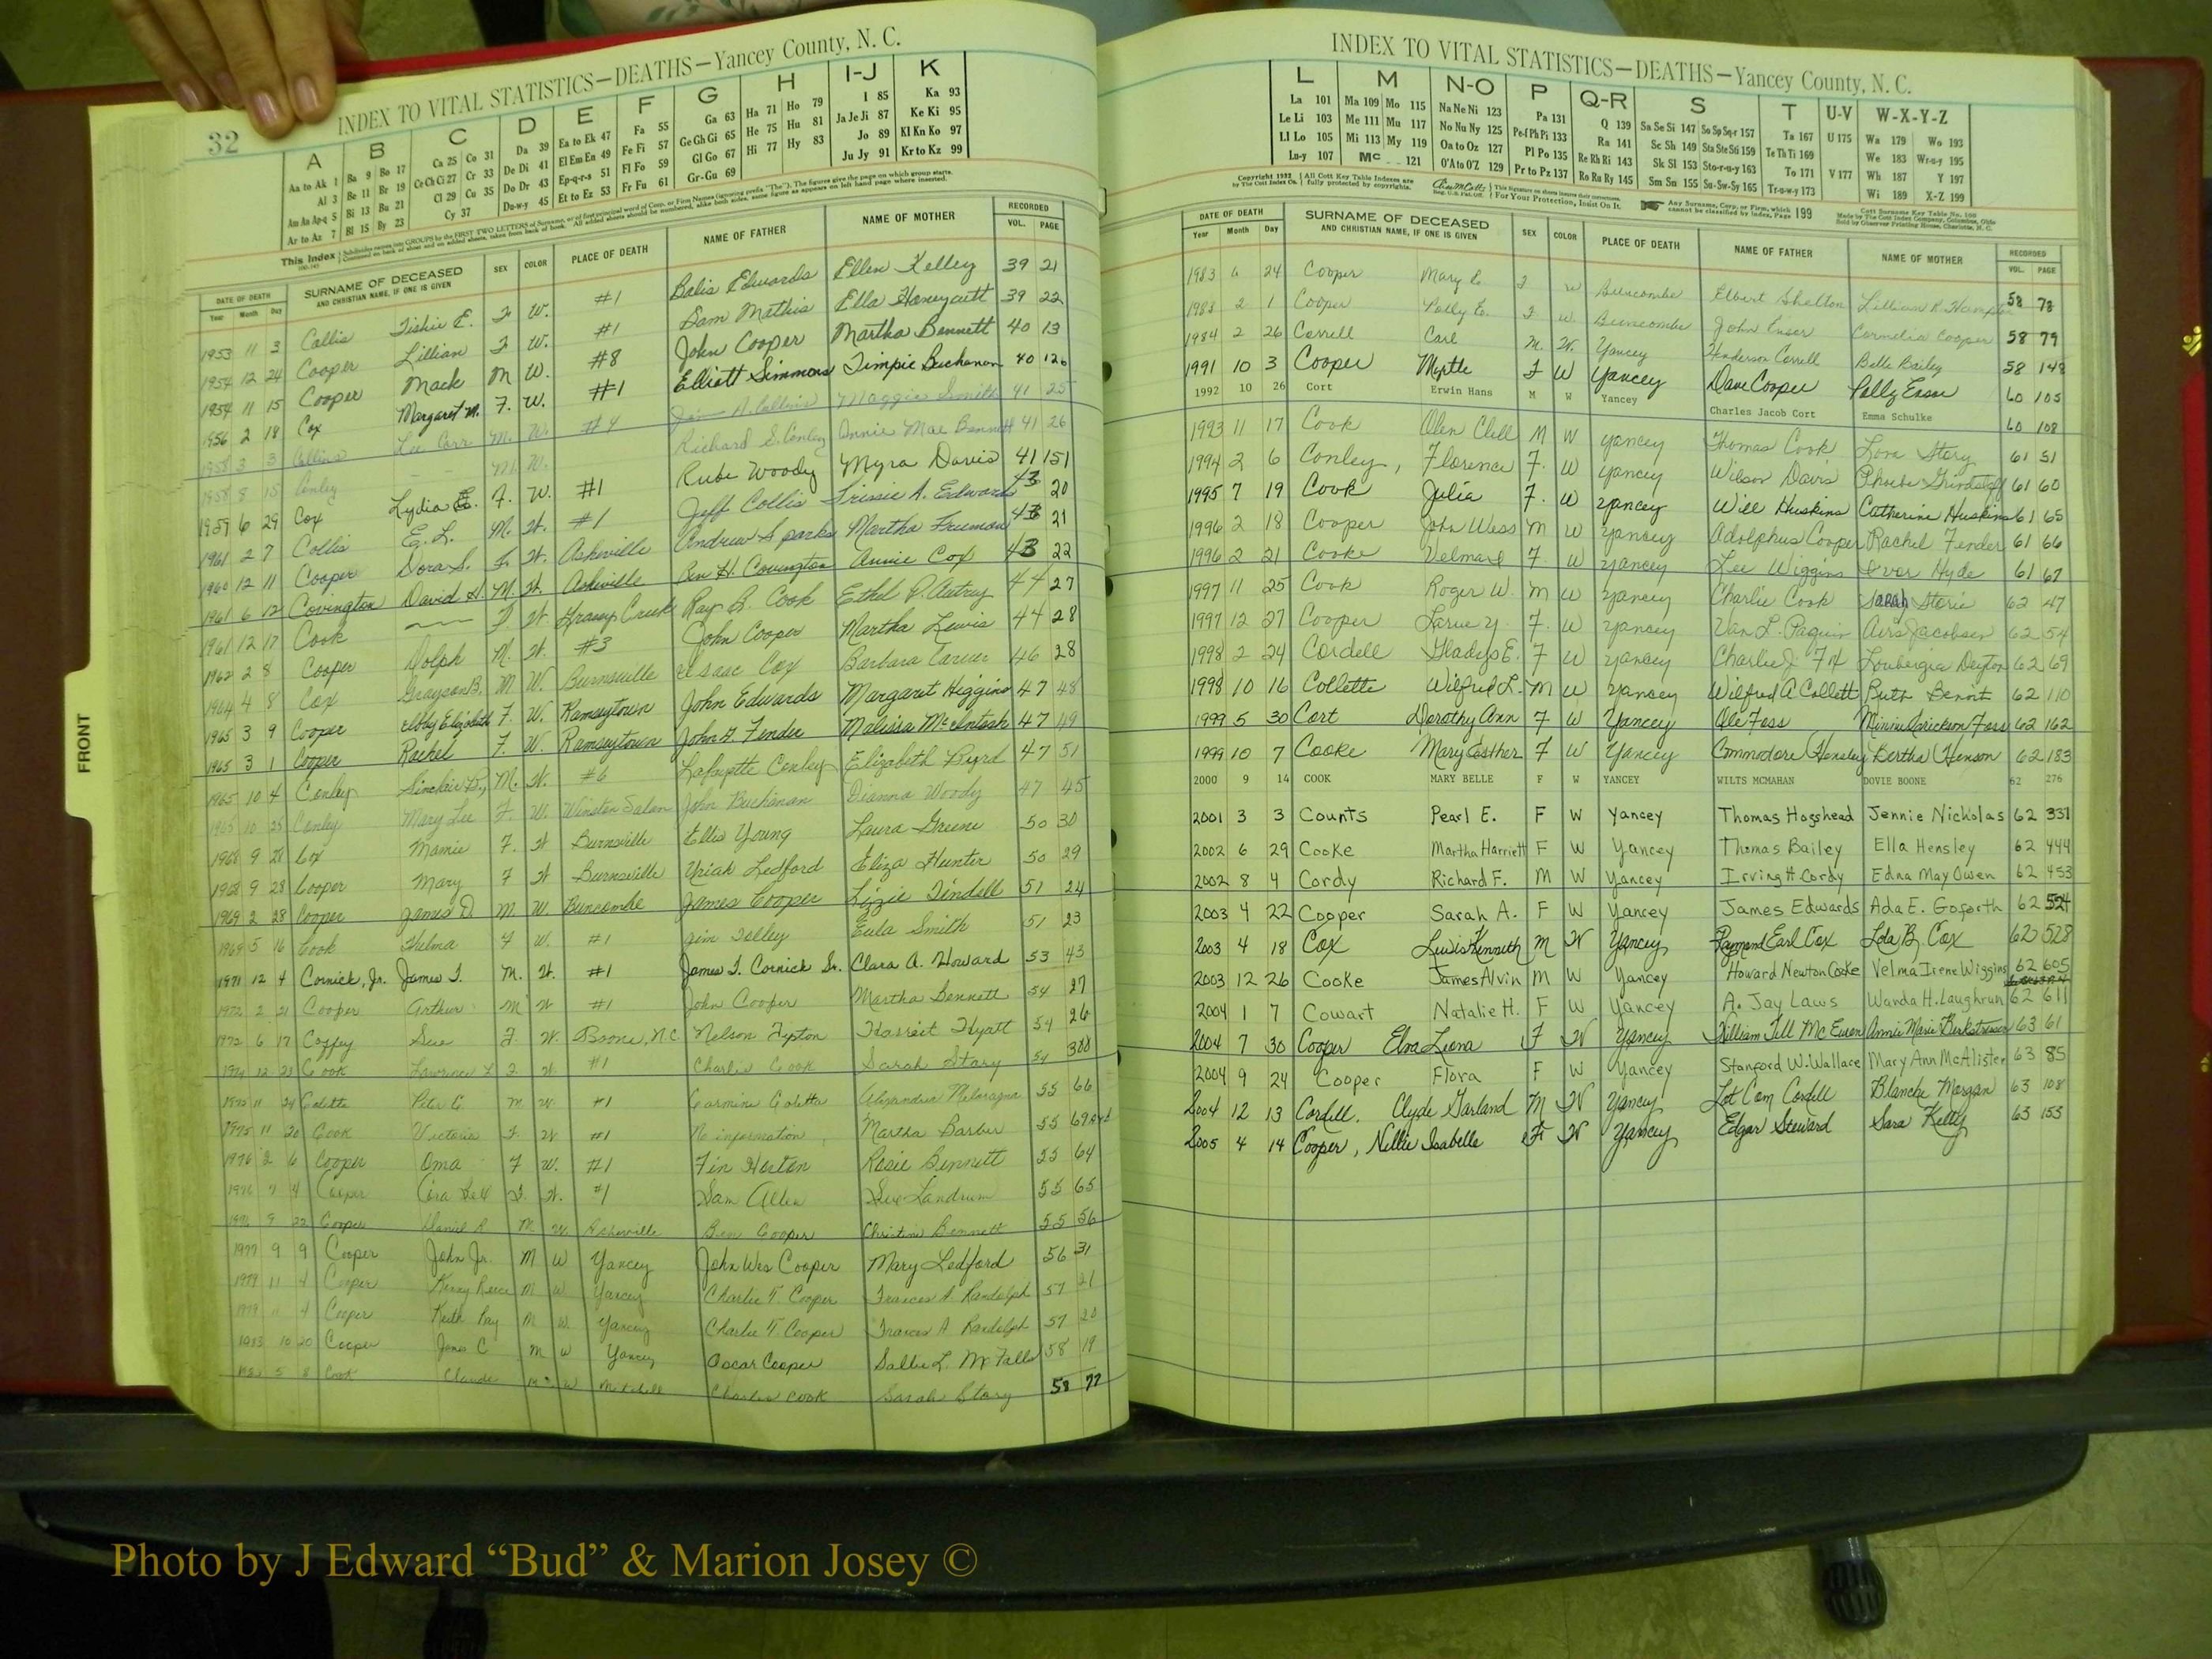 32
INDEX TO VITAL STATISTICS—DEATHS—Yancey County, N. C.
A B C D E F G H I-J K
Aa to Ak 1 Ba 9 Bo 17 Ca 25 Co 31 Da 39 Ea to Ek 47 Fa 55 Ga 63 Ha 71 Ho 79 I 85 Ka 93
Al 3 Be 11 Br 19 Ce Ch Ci 27 Cr 33 De Di 41 El Em En 49 Fe Fi 57 Ge Gh Gi 65 He 75 Hu 81 Ja Je Ji 87 Ke Ki 95
Am An Ap-q 5 Bi 13 Bu 21 Cl 29 Cu 35 Do Dr 43 Ep-q-r-s 51 Fl Fo 59 Gl Go 67 Hi 77 Hy 83 Jo 89 Kl Kn Ko 97
Ar to Az 7 Bl 15 By 23 Cy 37 Du-w-y 45 Et to Ez 53 Fr Fu 61 Gr-Gu 69 Ju Jy 91 Kr to Kz 99
This Index
DATE OF DEATH SURNAME OF DECEASED SEX COLOR PLACE OF DEATH NAME OF FATHER NAME OF MOTHER RECORDED
Year Month Day AND CHRISTIAN NAME, IF ONE IS GIVEN VOL. PAGE
1953 11 3 Collis Tishie E. F W. #1 Balis Edwards Ellen Kelley 39 21
1954 12 24 Cooper Lillian F W. #1 Sam Mathis Ella Honeycutt 39 22
1954 11 15 Cooper Mack M W. #8 John Cooper Martha Bennett 40 13
1956 2 18 Cox Margaret M. F. W. #1 Elliott Simmons Timpie Buchanan 40 126
1958 3 3 Collins Lee Carr M. W. #4 Jim A. Collins Maggie Smith 41 25
1958 8 15 Conley M. W. Richard S. Conley Annie Mae Bennett 41 26
1959 6 29 Cox Lydia E. F. W. #1 Rube Woody Myra Davis 41 151
1961 2 7 Collis E. L. M. W. #1 Jeff Collis A. Edwards 43 20
1960 12 11 Cooper Dora S. F. W. Asheville Andrew Sparks Martha Freeman 43 21
1961 6 12 Covington David H. M. W. Asheville Ben H. Covington Annie Cox 43 22
1961 12 17 Cook F W. Grassy Creek Ray B. Cook Ethel P. Autrey 44 27
1962 2 8 Cooper Dolph M. W. #3 John Cooper Martha Lewis 44 28
1964 4 8 Cox Grayson B. M W. Burnsville Isaac Cox Barbara 46 28
1965 3 9 Cooper Elizabeth F. W. Ramseytown John Edwards Margaret Higgins 47 48
1965 3 1 Cooper Rachel F. W. Ramseytown John H. Fender Malissa McIntosh 47 49
1965 10 4 Conley Sinclair B. M. W. #6 Lafayette Conley Elizabeth Byrd 47 51
1965 10 25 Conley Mary Lee F. W. Winston Salem John Buchanan Dianna Woody 47 45
1968 9 21 Cox Mamie F. W Burnsville Ellis Young Laura Greene 50 30
1968 9 28 Cooper Mary F W Burnsville Uriah Ledford Eliza Hunter 50 29
1969 2 28 Cooper James D. M. W. Buncombe James Cooper Lizzie Tindell 51 24
1969 5 16 Cook Thelma F W. #1 Jim Tolley Eula Smith 51 23
1971 12 4 Cornick, Jr. James T. M. W. #1 James T. Cornick Sr. Clara A. Howard 53 43
1972 2 21 Cooper Arthur M W #1 John Cooper Martha Bennett 54 27
1972 6 17 Coffey Sue F. W. Boone, N.C. Nelson Tipton Harriet Hyatt 54 26
1974 12 23 Cook Lawrence #1 Charlie Cook Sarah Story 54
1975 11 24 Coletta Peter C. M W #1 Carmine Coletta 55 66
1975 11 20 Cook Victoria F. W. #1 No information Martha Barber 55
1976 2 6 Cooper Oma F W. #1 Fin Horton Rosie Bennett 55 64
1976 7 4 Cooper Cora Bell F. W. #1 Sam Allen Sue Landrum 55 65
1976 9 22 Cooper Daniel R M W Asheville Ben Cooper Christine Bennett 55 56
1977 9 9 Cooper John Jr. M W Yancey John Wes Cooper Mary Ledford 56 31
1979 11 4 Cooper Kenny Reece M W Yancey Charlie T. Cooper Frances A. Randolph 57 21
1979 11 4 Cooper Keith Ray M W Yancey Charlie T. Cooper Frances A Randolph 57 20
1983 10 20 Cooper James C M W Yancey Oscar Cooper Sallie L. McFalls 58 19
5 8 Cook Claude M W Mitchell Charles Cook Sarah Story 58 77
FRONT
INDEX TO VITAL STATISTICS—DEATHS—Yancey County, N. C.
L M N-O P Q-R S T U-V W-X-Y-Z
La 101 Ma 109 Mo 115 Na Ne Ni 123 Pa 131 Q 139 Sa Se Si 147 So Sp Sq-r 157 Ta 167 U 175 Wa 179 Wo 193
Le Li 103 Me 111 Mu 117 No Nu Ny 125 Pe-f Ph Pi 133 Ra 141 Sc Sh 149 Sta Ste Sti 159 Te Th Ti 169 We 183 Wr-u-y 195
Ll Lo 105 Mi 113 My 119 Oa to Oz 127 Pl Po 135 Re Rh Ri 143 Sk Sl 153 Sto-r-u-y 163 To 171 V 177 Wh 187 Y 197
Lu-y 107 Mc 121 O'A to O'Z 129 Pr to Pz 137 Ro Ru Ry 145 Sm Sn 155 Su-Sw-Sy 165 Tr-u-w-y 173 Wi 189 X-Z 199
Copyright 1932 by The Cott Index Co. All Cott Key Table Indexes are fully protected by copyrights. For Your Protection, Insist On It. Any Surname, Corp. or Firm, which cannot be classified by Index, Page 199
DATE OF DEATH SURNAME OF DECEASED SEX COLOR PLACE OF DEATH NAME OF FATHER NAME OF MOTHER RECORDED
Year Month Day AND CHRISTIAN NAME, IF ONE IS GIVEN VOL. PAGE
1983 6 24 Cooper Mary E. F W Buncombe Elbert Shelton Lillian R. 58 78
1983 2 1 Cooper Polly E. F W Buncombe John Cornelia Cooper 58 79
1984 2 26 Correll Carl M. W. Yancey Henderson Correll Belle Bailey 58 148
1991 10 3 Cooper Myrtle F W Yancey Dave Cooper Polly 60 105
1992 10 26 Cort Erwin Hans M W Yancey Charles Jacob Cort Emma Schulke 60 108
1993 11 17 Cook Olen Clell M W Yancey Thomas Cook Lora Story 61 51
1994 2 6 Conley, Florence F. W Yancey Wilson Davis Phoebe Grindstaff 61 60
1995 7 19 Cook Julia F. W Yancey Will Huskins Catherine Huskins 61 65
1996 2 18 Cooper John Wess M W Yancey Adolphus Cooper Rachel Fender 61 66
1996 2 21 Cooke Velma F. W Yancey Lee Wiggins Hyde 61 67
1997 11 25 Cook Roger W. M W Yancey Charlie Cook Sarah Storie 62 47
1997 12 27 Cooper Larue Y. F. W Yancey Van L. Paquin Jacobsen 62 54
1998 2 24 Cordell Gladys E. F W Yancey Charlie J. Loubergia Deyton 62 69
1998 10 16 Collette Wilfred L. M W Yancey Wilfred A Collett Ruth Benoit 62 110
1999 5 30 Cort Dorothy Ann F W Yancey Ole Foss Minnie Foss 62 162
1999 10 7 Cooke Mary Easther F W Yancey Commodore Hensley Bertha Henson 62 183
2000 9 14 COOK MARY BELLE F W YANCEY WILTS MCMAHAN DOVIE BOONE 62 276
2001 3 3 Counts Pearl E. F W Yancey Thomas Hogshead Jennie Nicholas 62 331
2002 6 29 Cooke Martha Harriett F W Yancey Thomas Bailey Ella Hensley 62 444
2002 8 4 Cordy Richard F. M W Yancey Irving H Cordy Edna May Owen 62 453
2003 4 22 Cooper Sarah A. F W Yancey James Edwards Ada E. Goforth 62 524
2003 4 18 Cox Lewis Kenneth M W Yancey Raymond Earl Cox Lola B. Cox 62 528
2003 12 26 Cooke James Alvin M W Yancey Howard Newton Cooke Velma Irene Wiggins 62 605
2004 1 7 Cowart Natalie H. F W Yancey A. Jay Laws Wanda H. Laughrun 62 611
2004 7 30 Cooper Elva Leona F W Yancey William Tell McEuen Annie Marie 63 61
2004 9 24 Cooper Flora F W Yancey Stanford W. Wallace Mary Ann McAlister 63 85
2004 12 13 Cordell. Clyde Garland M W Yancey Lot Com Cordell Blanche Morgan 63 108
2005 4 14 Cooper, Nellie Isabelle F W Yancey Edgar Steward Sara Kelly 63 155
Photo by J Edward “Bud” & Marion Josey ©